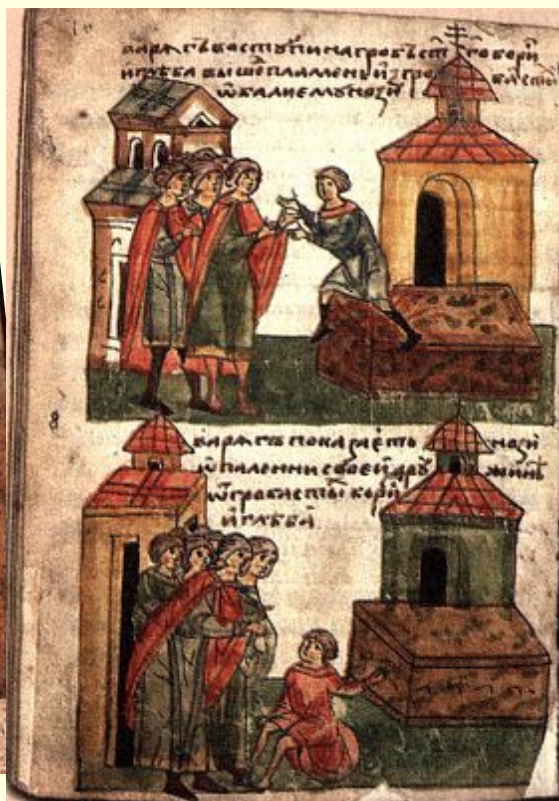 варѧгъ воступи на гробъ ст го бори
и глѣба выше пламень и згро ба сты
ѡпали ему нози
варѧгъ показаеть нози
ѡпаленни своеи дру жинѣ
ѿ гроба сты бори
и глѣба